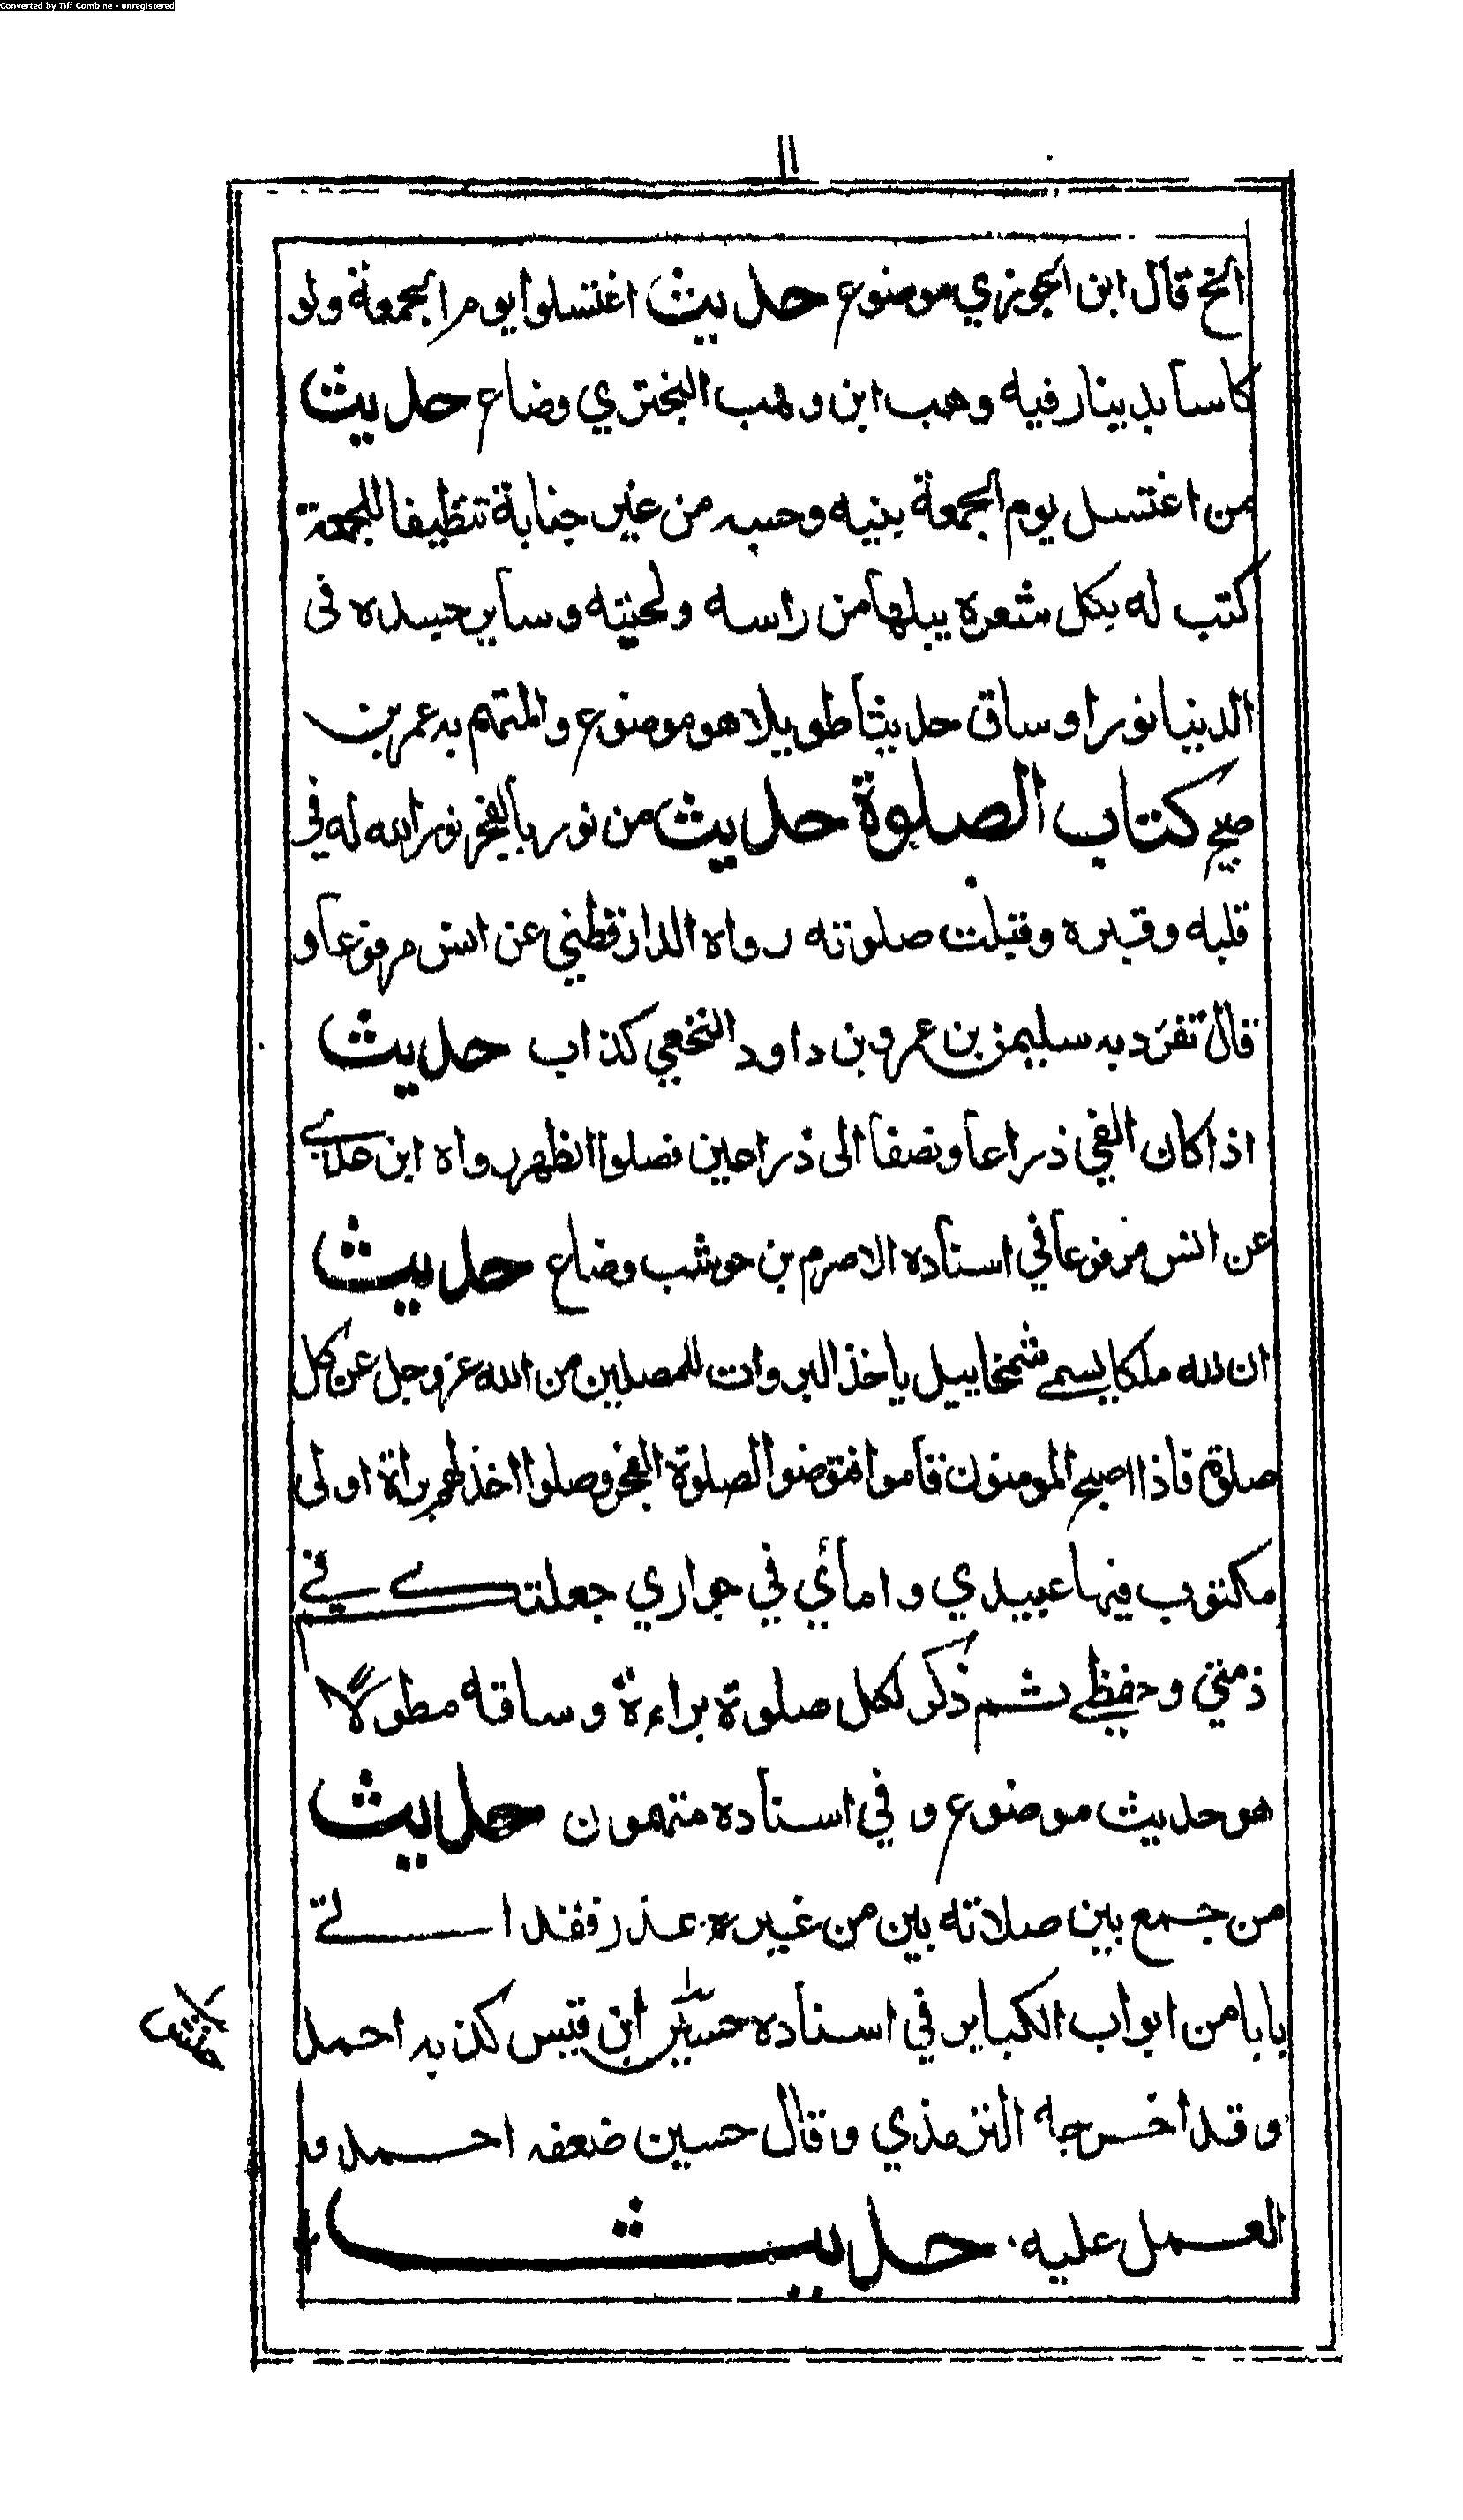 Converted by Tiff Combine - unregistered
١١
الخ قال ابن الجوزي موضوع حديث اغتسلوا يوم الجمعة ولو
كاسا بدينار فيه وهب ابن وهب البختري وضاع حديث
من اغتسل يوم الجمعة بنيه وحسبه من غير جنابة تنظيفا للجمعة
كتب له بكل شعرة يبلها من راسه ولحيته وساير جسده في
الدنيا نورا وساق حديثا طويلا هو موضوع والمتهم به عمر بن
صبح كتاب الصلوة حديث من نور بالفجر نور الله له في
قلبه وقبره وقبلت صلوته رواه الدارقطني عن انس مرفوعا و
قال تفرد به سليمن بن عمرو بن داود النخعي كذاب حديث
اذا كان الفي ذراعا ونصفا الى ذراعين فصلوا الظهر رواه ابن عدي
عن انس مرفوعا في اسناده الاصرم بن حوشب وضاع حديث
ان لله ملكا يسمى شمخاييل ياخذ البروات للمصلين من الله عز وجل عن كل
صلوة فاذا اصبح المومنون قاموا فتوضوا لصلوة الفجر وصلوا اخذ لهم براة اولى
مكتوب فيها عبيدي وامائي في جواري جعلتكم في
ذمتي وحفظي ثم ذكر لكل صلوة براءة وساقه مطولا
هو حديث موضوع و في اسناده متهمون حديث
من جمع بين صلاته بين من غيره عذر فقد اتى
بابا من ابواب الكباير في اسناده حسين ابن قيس كذبه احمد
وقد اخرجه الترمذي وقال حسين ضعفه احمد و
العمل عليه حديث